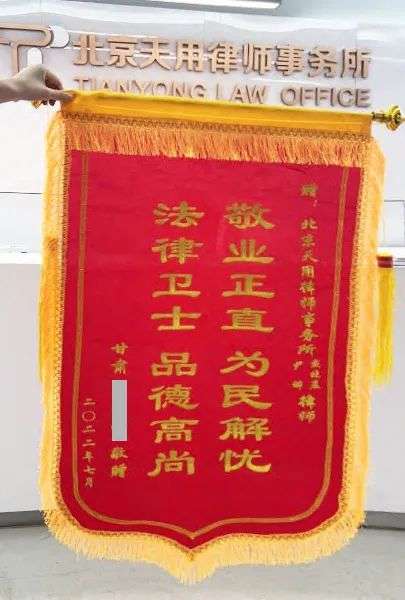 北京天用律师事务所
TIANYONG LAW OFFICE
赠：北京天用律师事务所 律师
敬业正直 为民解忧
法律卫士 品德高尚
甘肃 敬赠
二〇二二年七月